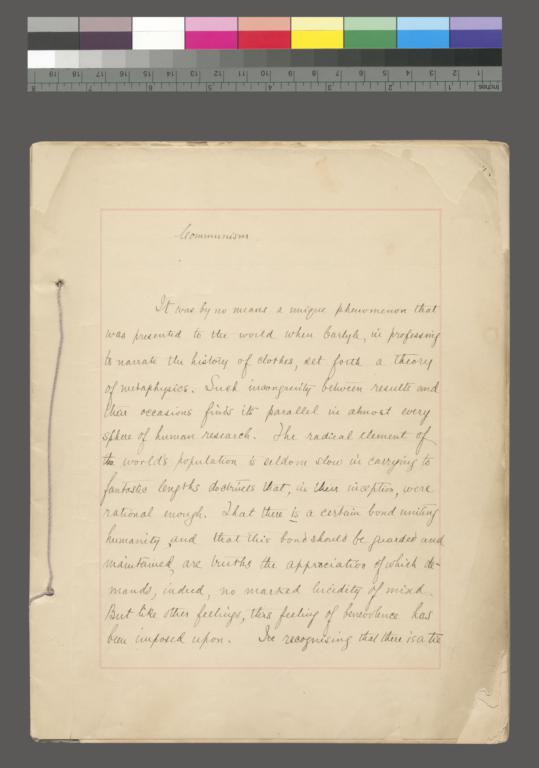 Communism
It was by no means a unique phenomenon that
was presented to the world when Carlyle, in professing
to narrate the history of clothes, set forth a theory
of metaphysics. Such incongruity between results and
their occasions finds its parallel in almost every
sphere of human research. The radical element of
the world's population is seldom slow in carrying to
fantastic lengths doctrines that, in their inception, were
rational enough. That there is a certain bond uniting
humanity, and that this bond should be guarded and
maintained, are truths the appreciation of which de-
mands, indeed, no marked lucidity of mind.
But like other feelings, this feeling of benevolence has
been imposed upon. In recognising that there is a tie